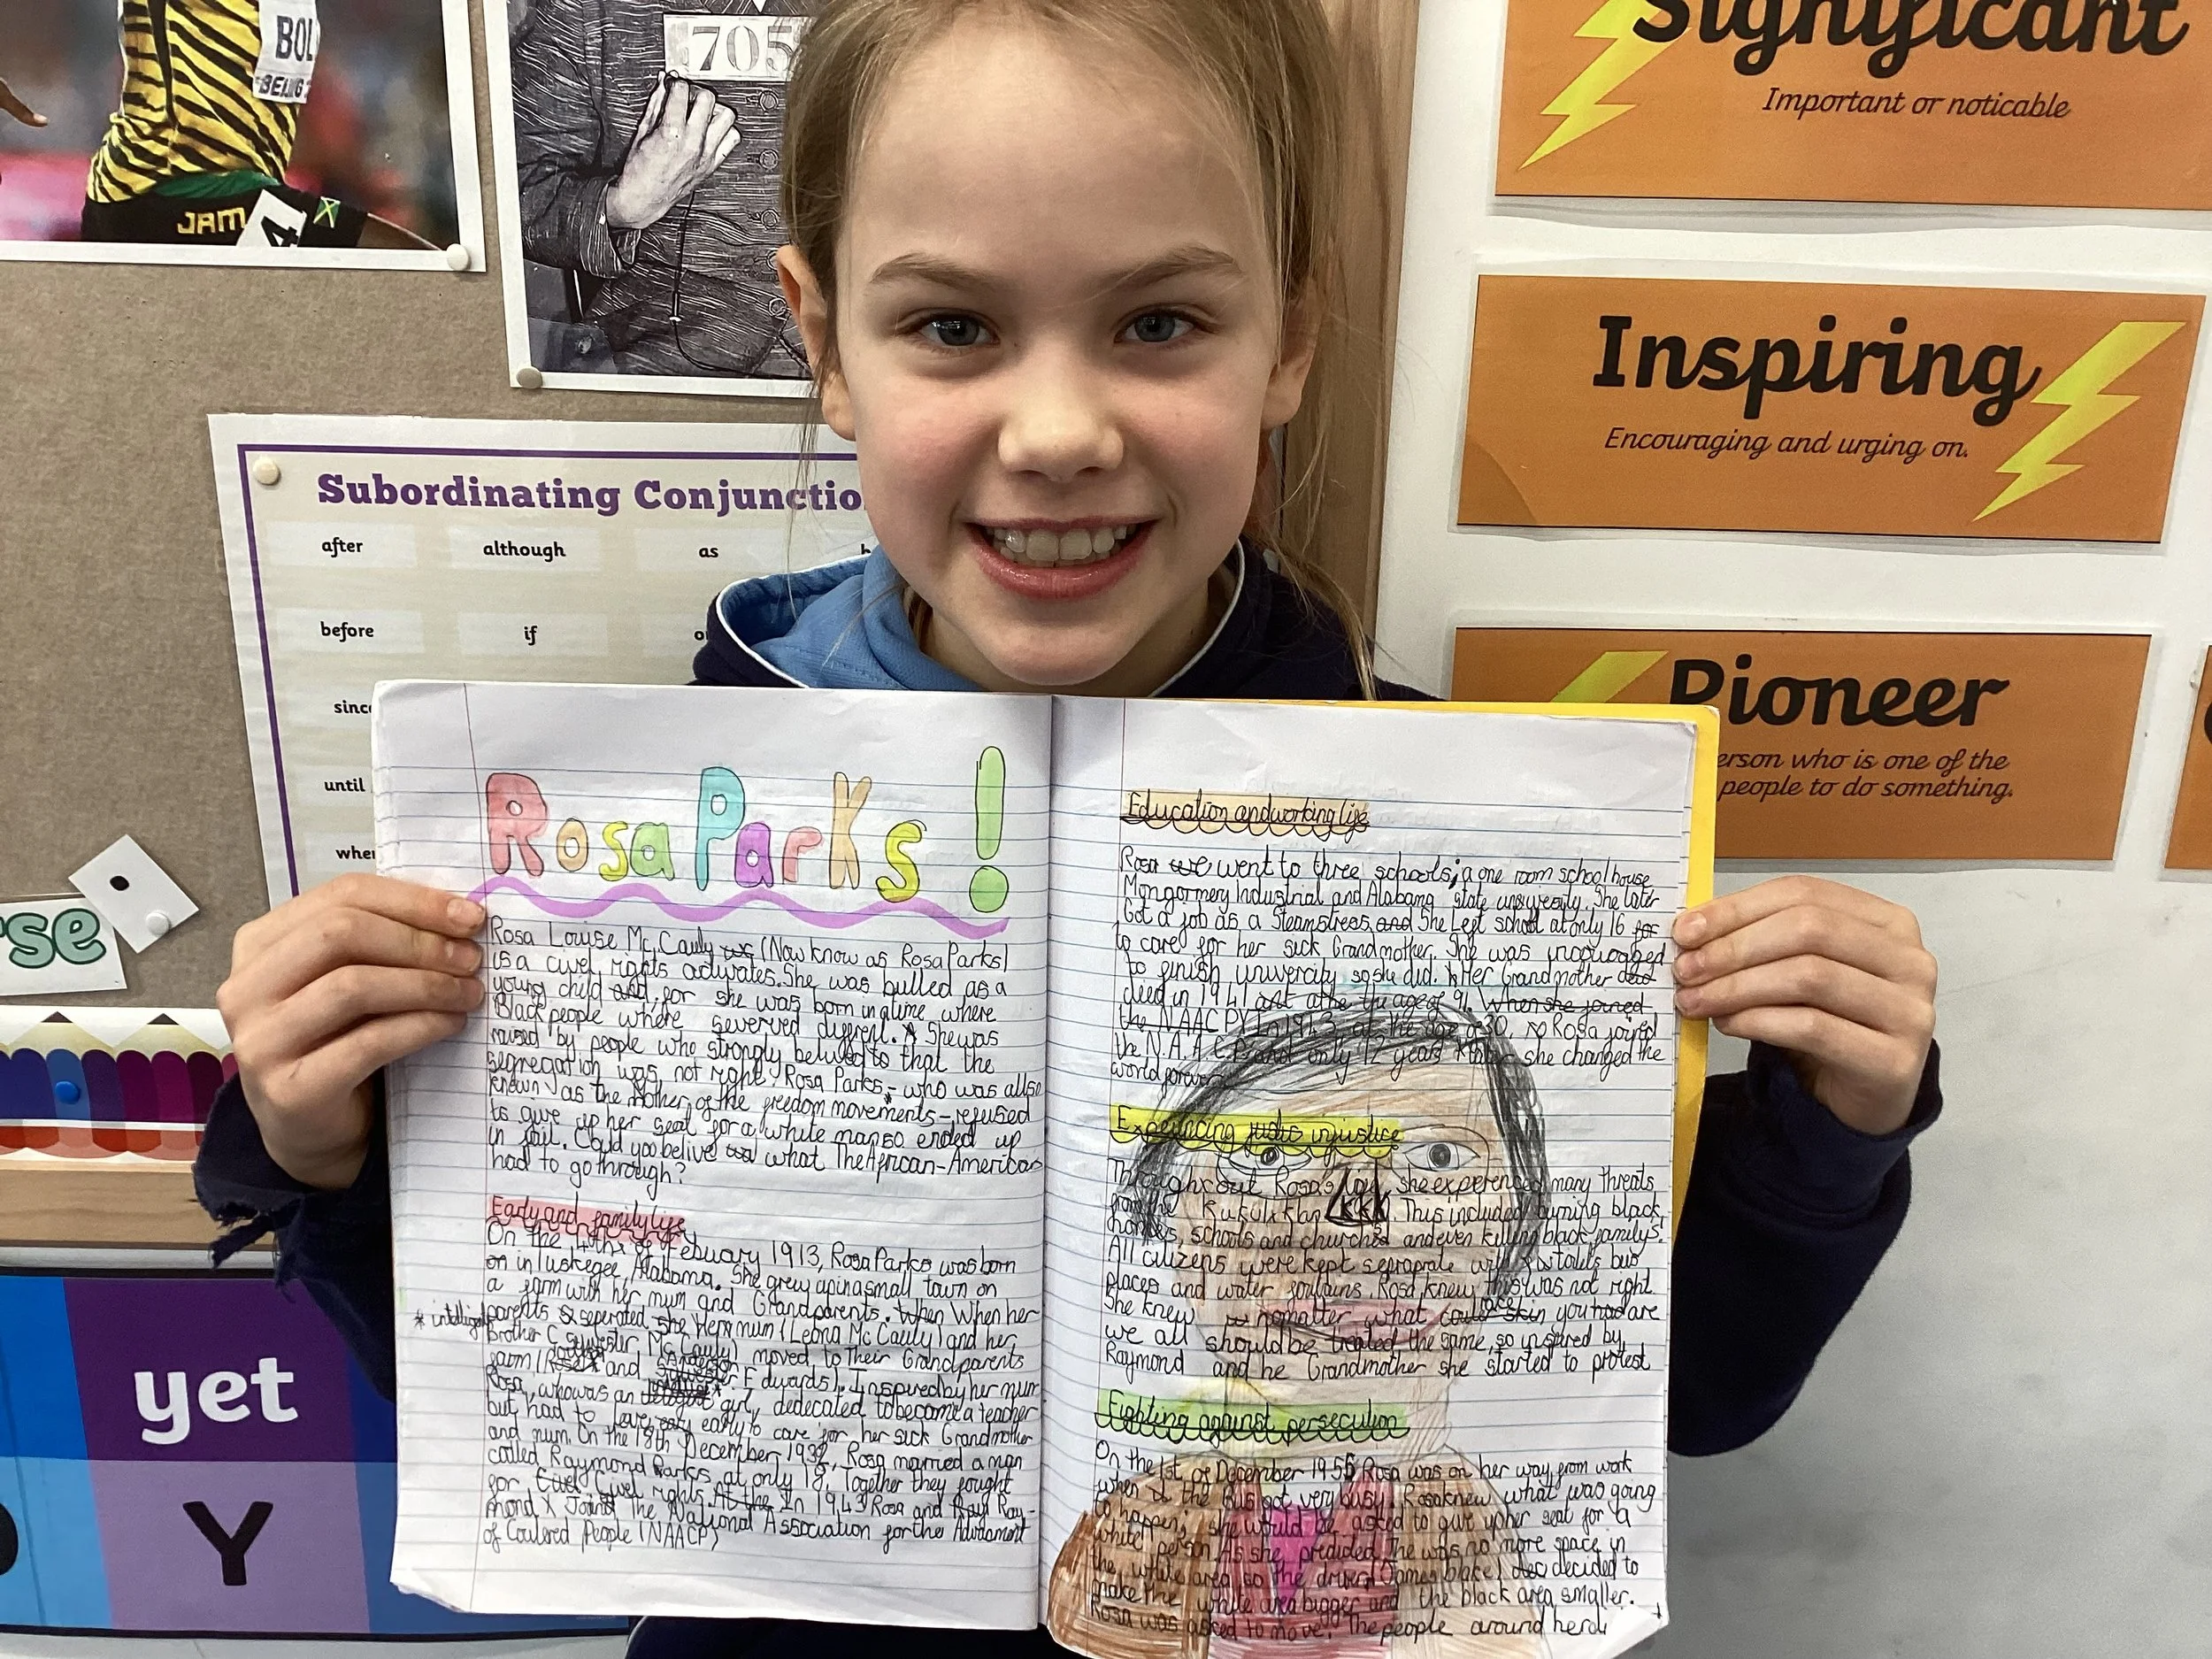 BOL
BEIJING
JAM
4
705
Significant
Important or noticable
Inspiring
Encouraging and urging on.
Pioneer
erson who is one of the
people to do something.
Subordinating Conjunctio
after although as b
before if o
since
until
whe
rse
yet
Y
Rosa Parks!
Rosa Louise Mc Cauly (Now know as Rosa Parks)
is a civel rights activates. She was bulled as a
young child and for she was born in a time where
Black people where severved diffrent. She was
raised by people who strongly belived to that the
segregation was not right. Rosa Parks - who was allso
known as the mother of the freedom movements - refused
to give up her seat for a white man so ended up
in jail. Could you belive what The African-Americas
had to go through?
Early and family life
On the 4th of Febuary 1913, Rosa Parks was born
on in Tuskegee, Alabama. She grew up in a small town on
a farm with her mum and Grandparents. When When her
parents seperated she Her mum (Leona Mc Cauly) and her
* intelligent
Brother ( Sylvester Mc Cauly) moved to Their Grandparents
farm ( and Sylvester Edwards). Inspired by her mum
Rosa, who was an * girl, dedecated to become a teacher
but had to leave early to care for her sick Grandmother
and mum. On the 18th December 1932, Rosa married a man
called Raymond Parks at only 18. Together they fought
for Civel Civel rights. At the In 1943 Rosa and Ray Ray-
mond Joind The National Association for the Advasment
of Coulered People (NAACP)
Education and working life
Rosa went to three schools; a one room school house
Mongormery Industrial and Alabama state university. She later
Got a job as a Steamstress and She Left school at only 16 for
to care for her sick Grandmother. She was
to finish univercity so she did. Her Grandmother dead
died in 1941 at the age of 91. When she joined
the NAACP in 1913 at the age of 30, so Rosa joined
the N.A.A.C.P and only 12 years later she changed the
world forever
Experincing injustice
Throughout Rosa's life, she experienced many threats
from the Kukulx Klan KKK. This included burning black
homes, schools and churches and even killing black family's.
All citizens were kept seproprate with toilits bus
places and water fountains. Rosa knew this was not right
She knew no matter what race skin you had are
we all should be treated the same, so inspired by
Raymond and he Grandmother she started to protest
Fighting against persecution
On the 1st of December 1955 Rosa was on her way from work
when the Bus got very busy. Rosa knew what was going
to happen; she would be asked to give up her seat for a
white person. As she predided The was no more space in
the white area so the driver (James Blake) decided to
make the white area bigger and the black area smaller.
Rosa was asked to move. The people around her did